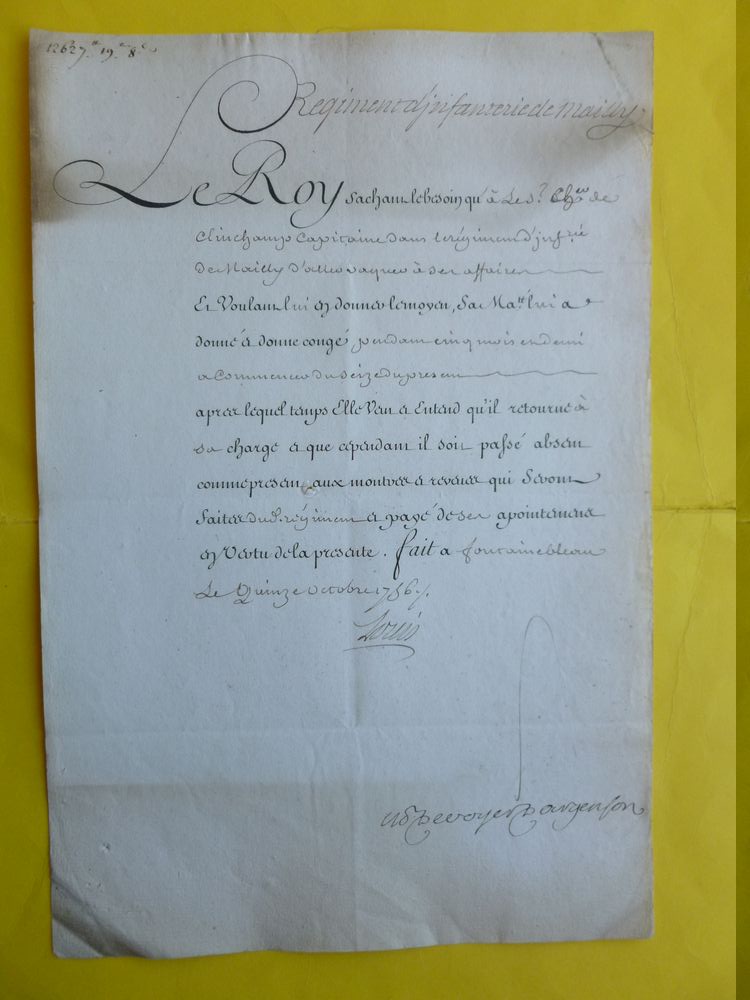 Regiment d'jnfanterie de Mailly
Le Roy sachant le besoin qu'a Le S.r Ch.er de
Clinchamp Capitaine dans le régiment d'jnf.rie
de Mailly d'aller vaquer à ses affaires
Et Voulant lui en donner le moyen, Sa Ma.té lui a
donné et donne congé pendant cinq mois et demi
a Commencer du seize du present
apres lequel temps Elle Veut et Entend qu'il retourne à
sa charge et que cependant il soit passé absent
comme present aux montres et reveues qui Seront
faites dud. régiment et payé de ses apointemens
en Vertu de la presente. fait a fontainebleau
Le Quinze octobre 1756 ./.
Louis
De voyer D'argenson